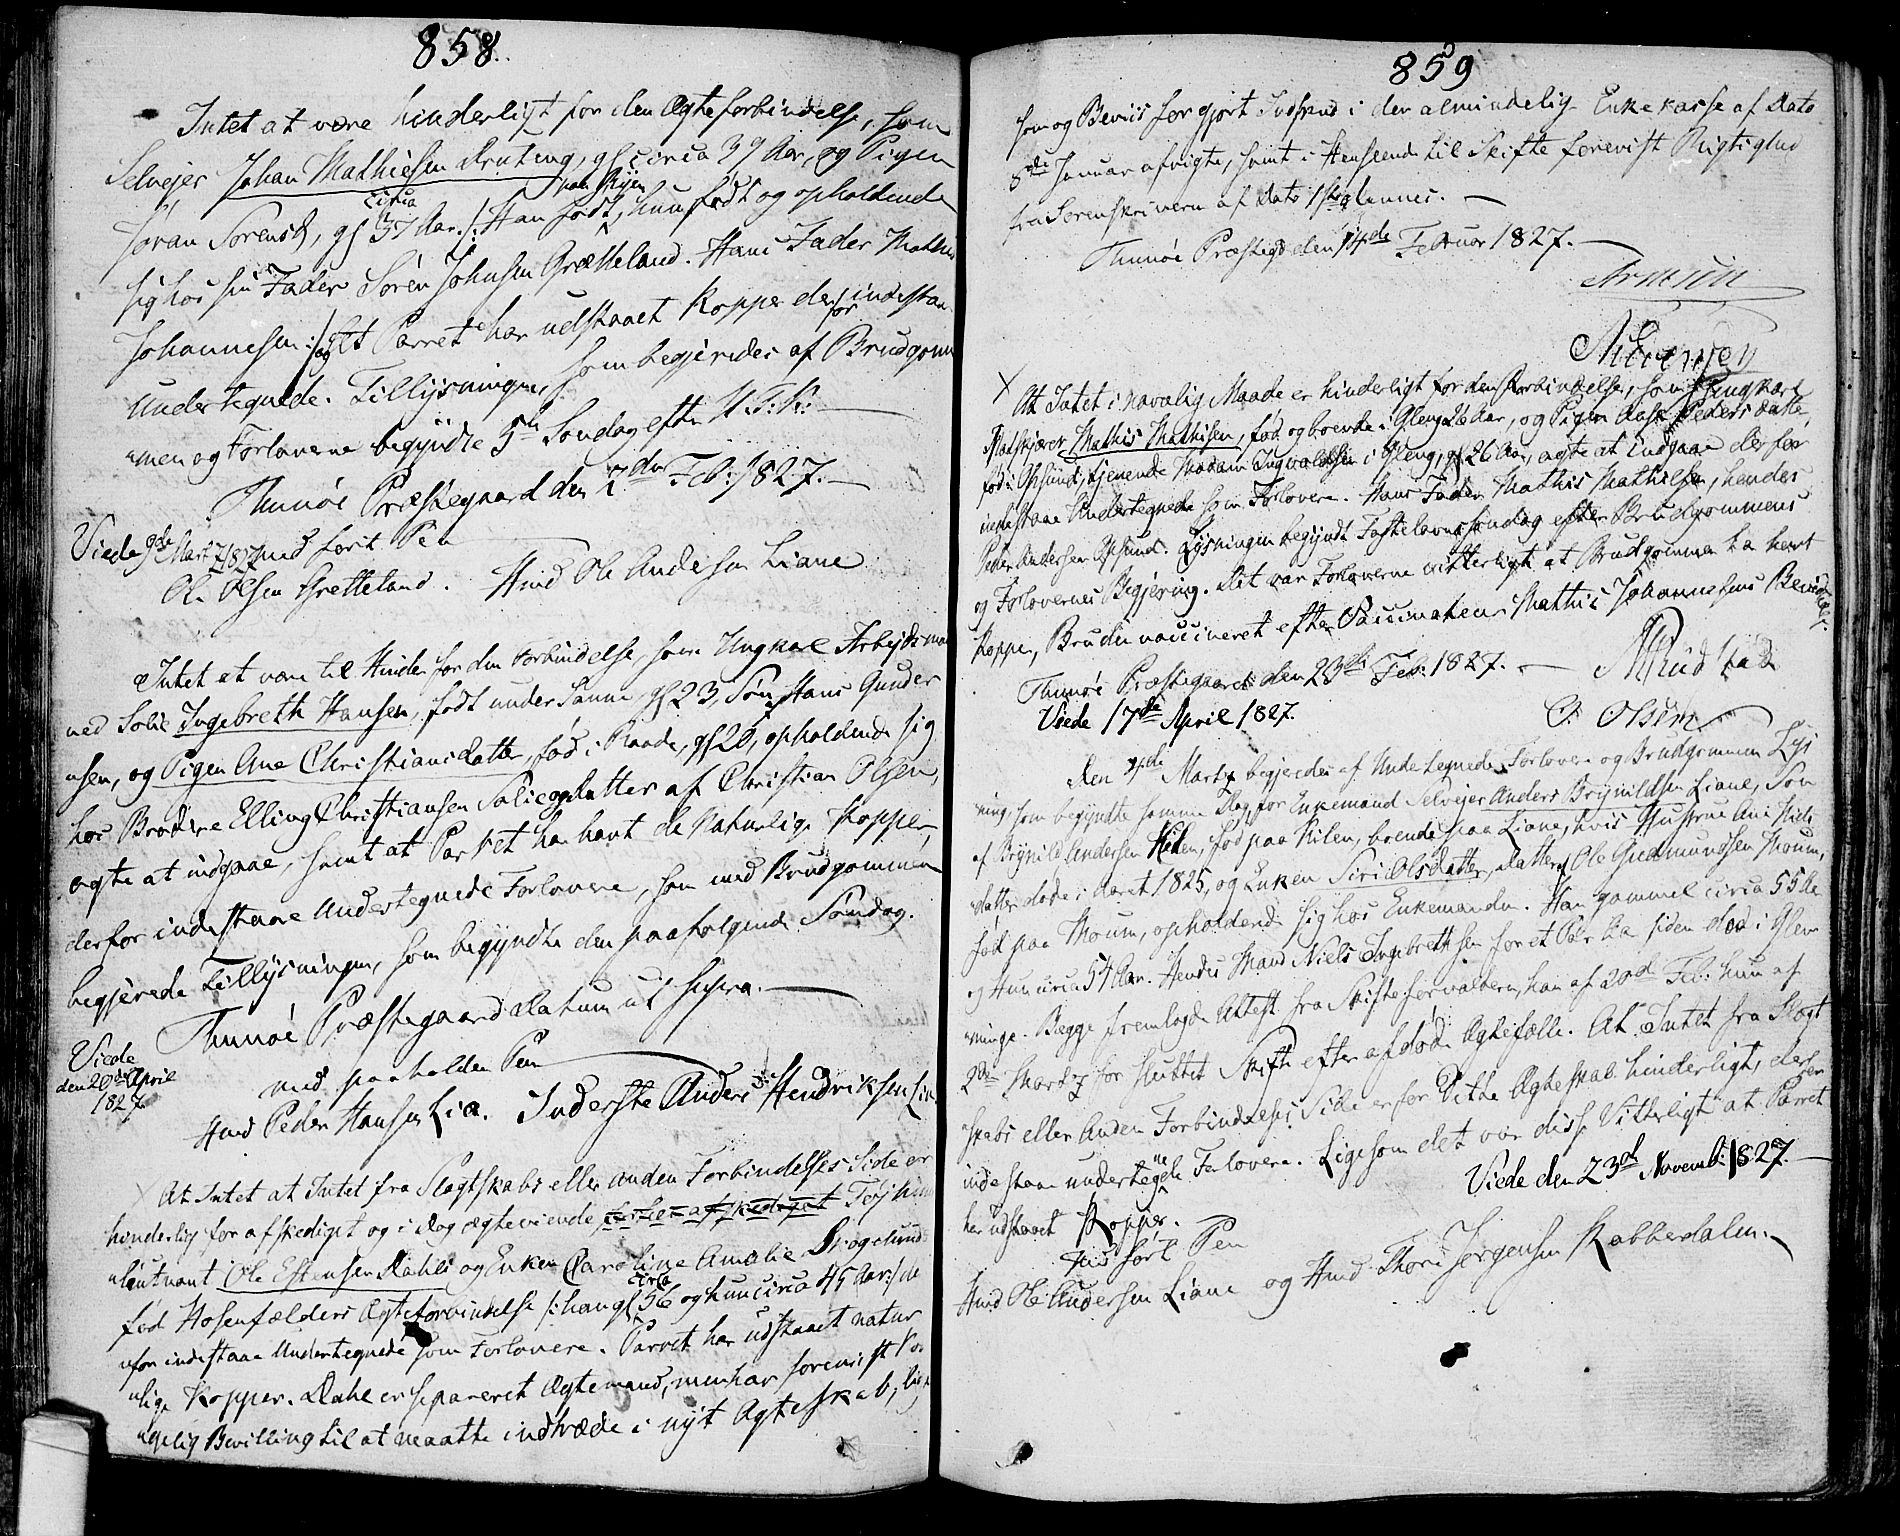 858.
Intet at være hinderligt for den Ægteforbindelse, som
Selvejer Johan Mathiesen gl circa 39 Aar, og Pigen
Joran Sorensd, gl circa 37 Aar /: Han født, hun født og opholdende
sig hos sin Fader Søren Johnsen Grætteland. Hans Fader Mathis
Johannesen :/ og at Parret har udstaaet Kopper derfor indestaae
Undertegnede. Tillysningen, som begjeredes af Brudgom
men og Forloverne begyndte 5te Søndag efter H. T. K:
Thunøe Præstegaard den 7de Feb: 1827.
Viede 9de Mart 1827 med ført Pen
Ole Olsen Gretteland. Hmd Ole Andersen Liane
Intet at være til Hinder for den Forbindelse, som Ungkarl Arbejdsmand
ved Solie Ingebreth Hansen, født under Sanne gl 23, Søn Hans Gunder
sen, og Pigen Ane Christiansdatter, fød i Raade, gl 20, opholdende sig
hos Brodere Elling Christiansen Solie og Datter af Christian Olsen,
agte at indgaae, samt at Parret har havt de Naturlige Kopper,
derfor indestaae Undertegnede Forlovere, som med Brudgommen
begjerede Tillysningen, som begyndte den paafølgende Søndag.
Thunøe Præstegaard Datum ut supra.
Viede
den 20de April
1827.
med paaholden Pen
Hmd Peder Hansen Lia. Inderste Anders Hendriksen Lia
At Intet at Intet fra Slægtskabs eller anden Forbindelses Side er
hinderlig for afskediget og i Dag ægteviende
lieutnant Ole Estensen Dahls og Enken Caroline Amalie
fød Hosenfælders Ægteforbindelse /: han gl circa 56 og hun circa 45 Aar :/ de
rfor indestaae Undertegnede som Forlovere. Parret har udstaaet natur
lige Kopper. Dahl er separeret Ægtemand, men har forevist Ko
ngelig Bevilling til at maatte indtræde i nyt Ægteskab,
859
som og Beviis for gjort Indskud i den almindelig Enkekasse af Dato
8de Januar afvigte, samt i Henseende til Skifte forevist Rigtighed
fra Sorenskriveren af Dato 1ste dennes.
Thunøe Præstegd den 14de Februar 1827.
At Intet i navnlig Maade er hinderligt for den Forbindelse, som Ungkarl
Mathis Mathisen, fød og boende i Gleng 26 Aar, og Pigen Aase Pedersdatter
fød i Opsund, tjenende Madam Ingvaldsen i Gleng, gl 26 Aar, agte at Endgaae derfor
indestaae Undertegnede som Forlovere. Hans Fader Mathis Mathisen, hendes
Peder Andersen Opsund. Lysningen begyndt Fastelavns Søndag efter Brudgommens
og Forlovernes Begjering. Det var Forloverne vitterligt at Brudgommen ha havt
Kopper, Bruden vaccineret efter Vaccinateur Mathis Johannesens Beviis
Thunøe Præstegaard den 23de Feb: 1827.
Viede 17de April 1827.
O. Olsen
Den Martz begjeredes af Undertegnede Forlovere og Brudgommen Lys
ning, som begyndte samme Dag, for Enkemand Selvejer Anders Brynildsen Liane, Søn
af Brynild Andersen Kilen, fød paa Kilen, boende paa Liane, hvis Hustrue Ane Niels
datter døde i Aaret 1825, og Enken Siri Olsdatter, Datter af Ole Gudmundsen Moum,
fød paa Moum, opholdende sig hos Enkemanden. Han gammel circa 55 Aa
og Hun circa 54 Aar. Hendes Mand Niels Ingebrethsen for et Par Aar siden død i Glem
minge. Begge fremlagde Attest fra Skifteforvalteren, han af 20de Feb: hun af
2den Martz for sluttet Skifte efter afdød Ægtefælle. At Intet fra Slægt
skabs eller Anden Forbindelses Side er for Dette Ægteskab hinderligt, derfor
indestaae undertegnede Forlovere. Ligesom det var disse Vitterligt at Parret
har udstaaet Kopper.
Viede den 23de Novemb: 1827.
ført Pen
Hmd Ole Andersen Liane og Hmd Thore Jørgensen Kabberdalen.